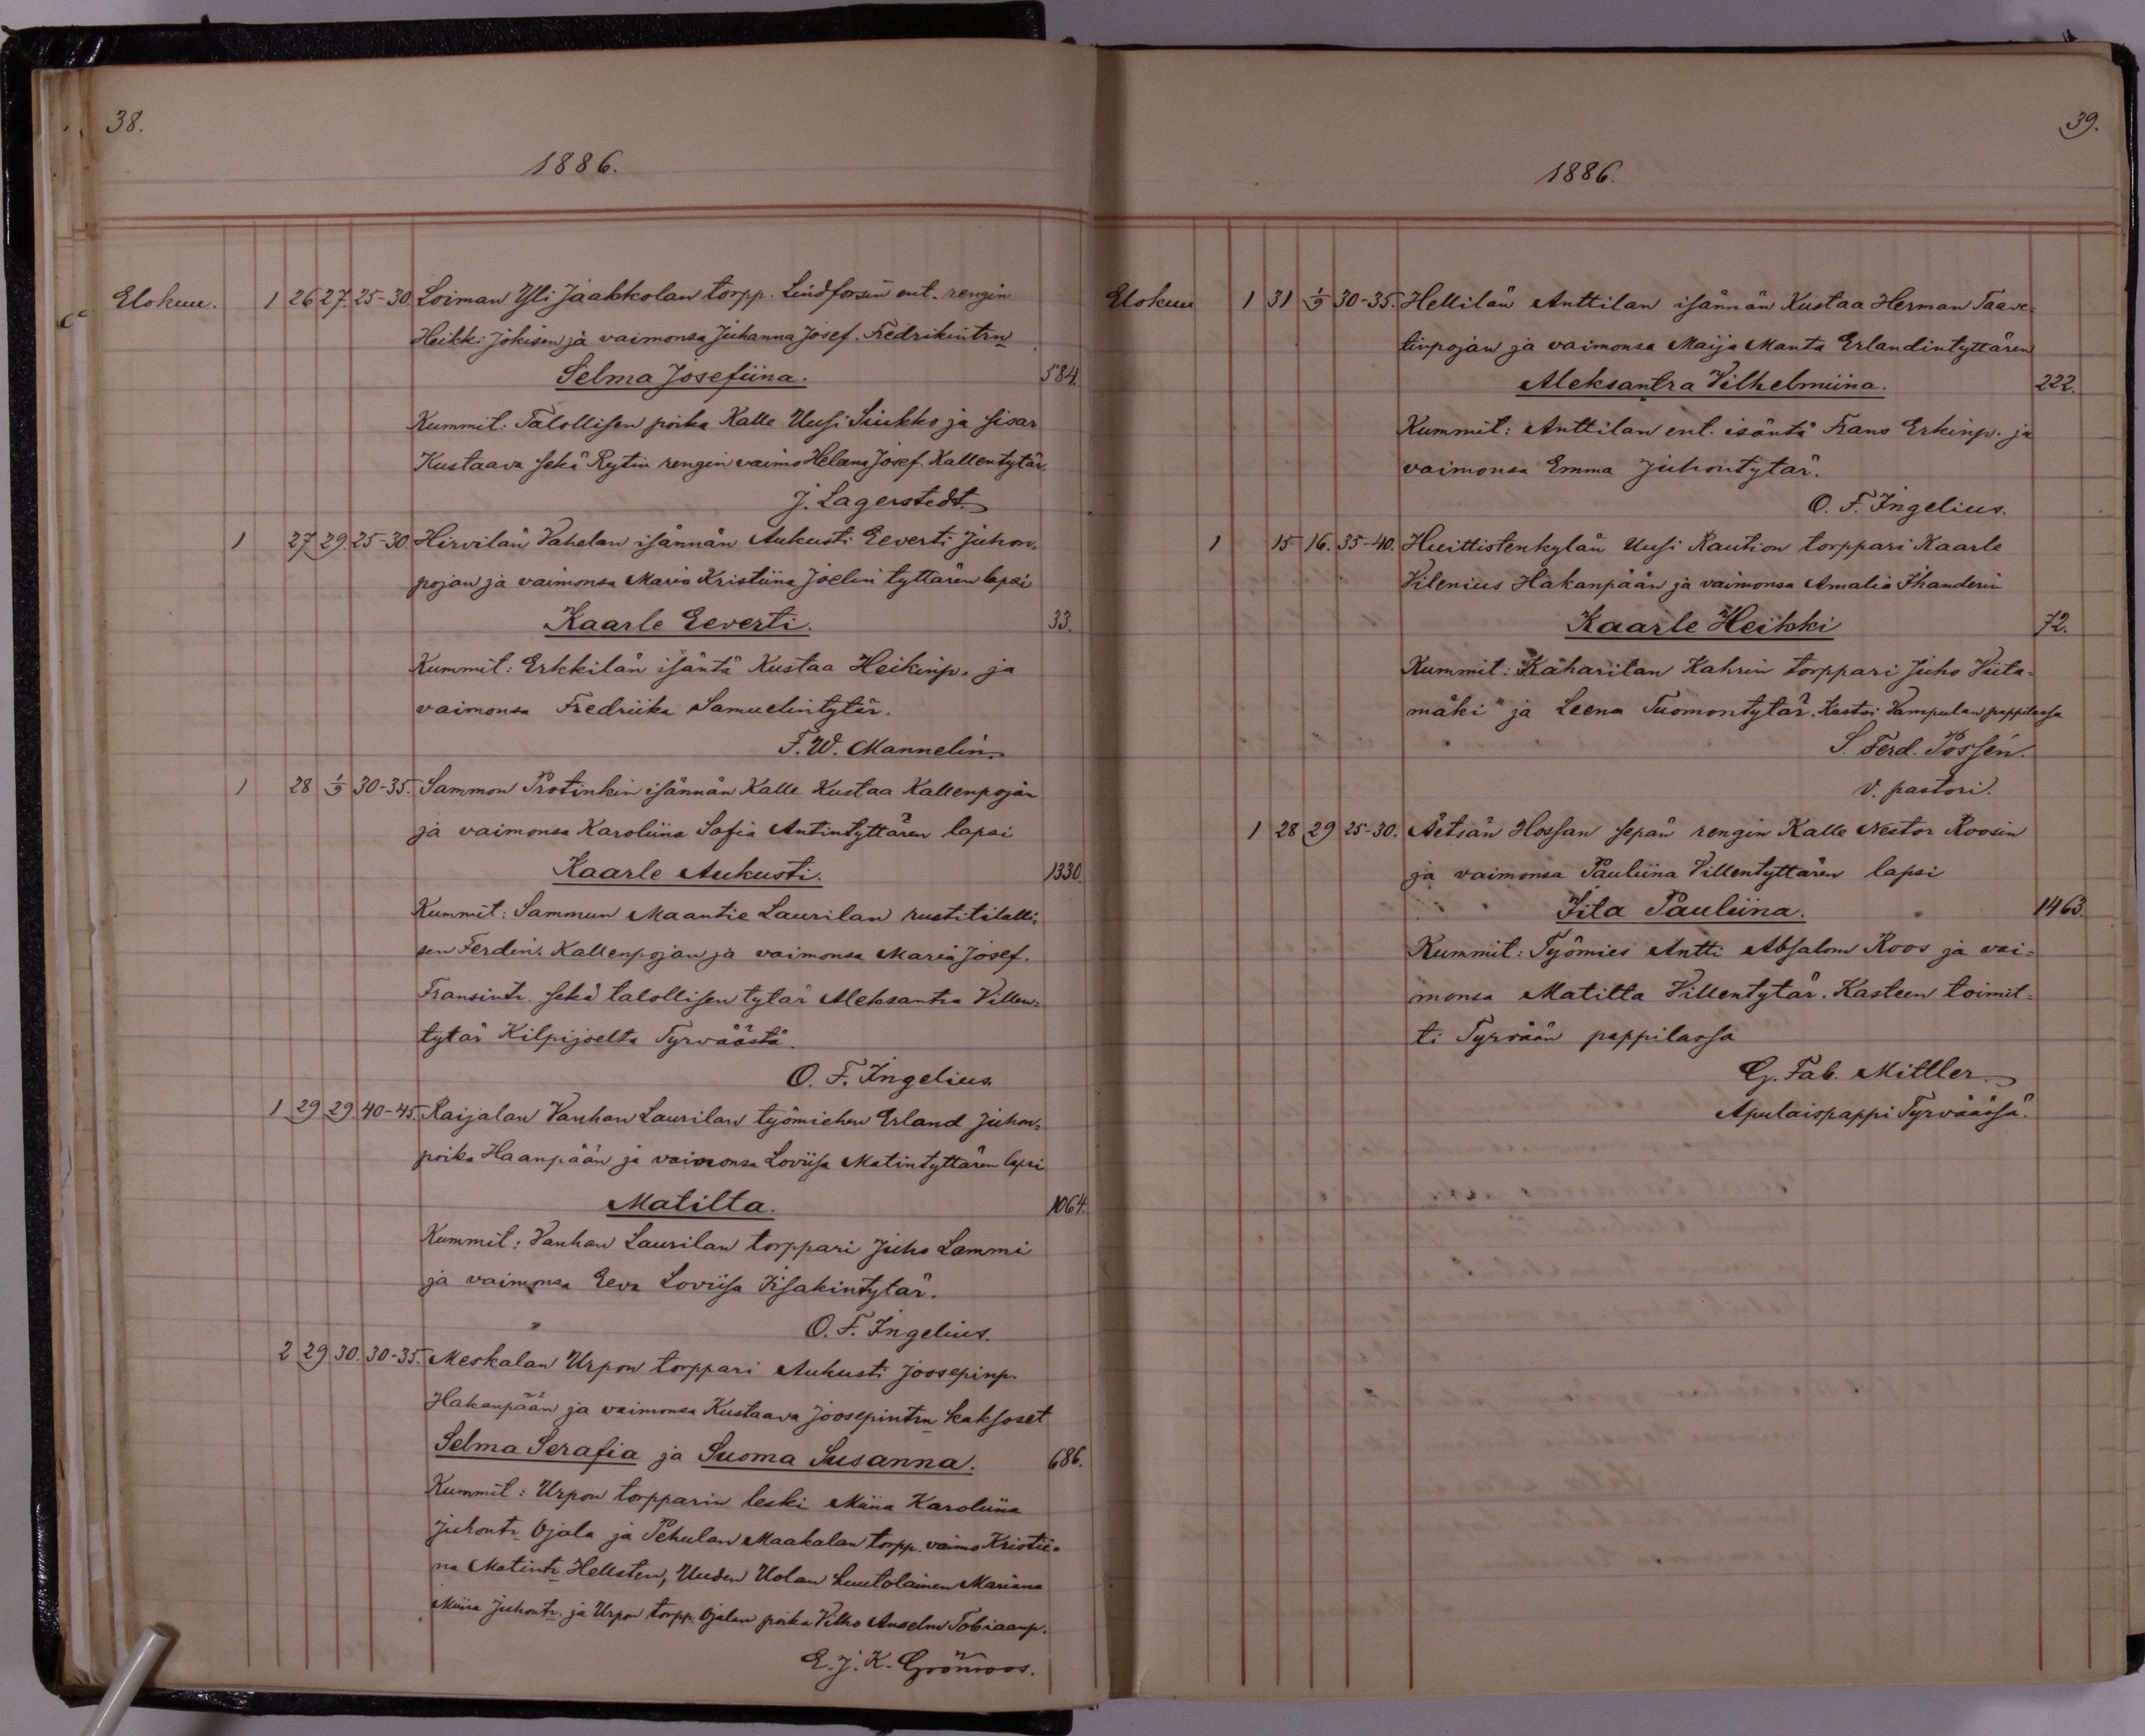 38.
1886.
Elokuu. 1 26 27. 25-30. Loiman Yli Jaakkolan torpp. Lindforsin ent. rengin
Heikki Jokisen ja vaimonsa Juhanna Josef. Fredrikintrn
Selma Josefiina. 584.
Kummit: Talollisen poika Kalle Uusi Siukko ja sisar
Kustaava sekä Rytin rengin vaimo Helena Josef. Kallentytär.
J. Lagerstedt.
1 27 29. 25-30. Hirvilän Vahelan isännän Aukusti Eeverti Juhon-
pojan ja vaimonsa Maria Kristiina Joelin tyttären lapsi
Kaarle Eeverti. 33.
Kummit: Erkkilän isäntä Kustaa Heikinp. ja
vaimonsa Fredriika Samuelintytär.
F. W. Mannelin.
1 28 1/9 30-35. Sammon Protinkin isännän Kalle Kustaa Kallenpojan
ja vaimonsa Karoliina Sofia Antintyttären lapsi
Kaarle Aukusti. 1330.
Kummit: Sammun Maantie Laurilan rustitilalli-
sen Ferdin. Kallenpojan ja vaimonsa Maria Josef.
Fransintr. sekä talollisen tytär Aleksantra Villen-
tytär Kilpijoelta Tyrväästä.
O. F. Ingelius.
1 29 29. 40-45. Raijalan Vanhan Laurilan työmiehen Erland Juhon-
poika Haanpään ja vaimonsa Loviisa Matintyttären lapsi
Matilta. 1064.
Kummit: Vanhan Laurilan torppari Juho Lammi
ja vaimonsa Eeva Loviisa Iisakintytär.
O. F. Ingelius.
2 29 30. 30-35. Meskalan Urpon torppari Aukusti Joosepinp.
Hakanpään ja vaimonsa Kustaava Joosepintrn kaksoset
Selma Serafia ja Suoma Susanna. 686.
Kummit: Urpon torpparin leski Miina Karoliina
Juhontr. Ojala ja Pehulan Maakalan torpp. vaimo Kristii-
na Matintr. Hellsten, Uuden Uolan luutolainen Mariana
Miina Juhontr. ja Urpon torpp. Ojalan poika Vilho Anselm Tobiaanp.
E. J. K. Grönroos.
39.
1886.
Elokuu 1 31 1/9 30-35. Hellilän Anttilan isännän Kustaa Herman Taave-
tinpojan ja vaimonsa Maija Manta Erlandintyttären
Aleksantra Vilhelmiina. 222.
Kummit: Anttilan ent. isäntä Frans Erkinp. ja
vaimonsa Emma Juhontytär.
O. F. Ingelius.
1 15 16. 35-40. Huittistenkylän Uusi Raution torppari Kaarle
Vilenius Hakanpään ja vaimonsa Amalia Ihanderin
Kaarle Heikki 72.
Kummit: Käharilan Kahrin torppari Juho Viita-
mäki ja Leena Tuomontytär. Kastoi Vampulan pappilassa
S. Ferd. Possén.
v. pastori.
1 28 29 25-30. Äetsän Hossan sepän rengin Kalle Nestor Roosin
ja vaimonsa Pauliina Villentyttären lapsi
Iita Pauliina. 1463.
Kummit: Työmies Antti Absalom Roos ja vai-
monsa Matilta Villentytär. Kasteen toimit-
ti Tyrvään pappilassa
G. Fab. Mittler.
Apulaispappi Tyrväässä.